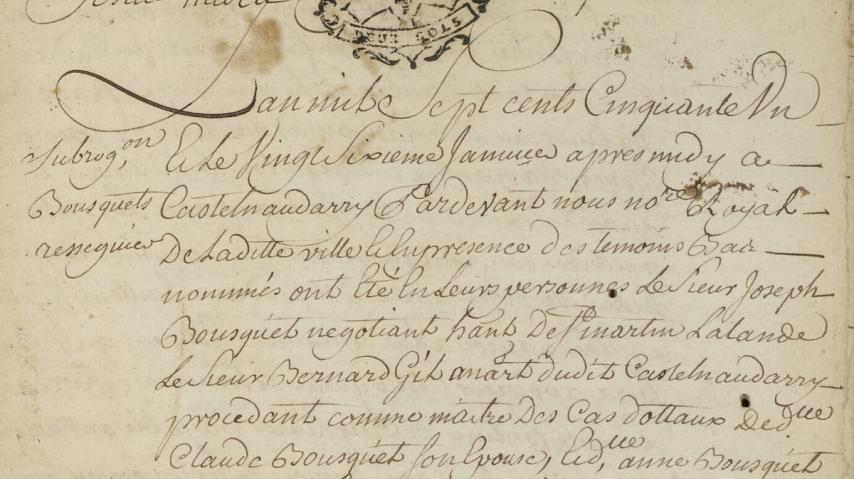 Lan mil Sept cents Cinquante Un
Subrog.on
Et Le Vingt Sixieme Janvier apres midy a
Bousquets
Castelnaudarry Pardevant nous no.re Royal
resseguier
De Laditte ville Et En presence des temoins Bas
nommés ont Eté En Leurs personnes Le Sieur Joseph
Bousquet negotiant habt De St martin Lalande
Le Sieur Bernard dudit Castelnaudarry
procedant comme maitre Des Cas dottaux De d.lle
Claude Bousquet Son Epouse, Et d.lle anne Bousquet